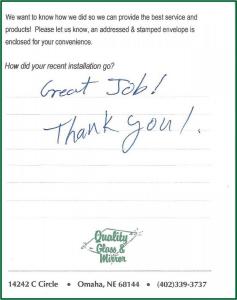 We want to know how we did so we can provide the best service and
products! Please let us know, an addressed & stamped envelope is
enclosed for your convenience.
How did your recent installation go?
Great Job!
Thank you!.
Quality
Glass &
Mirror
14242 C Circle • Omaha, NE 68144 • (402)339-3737